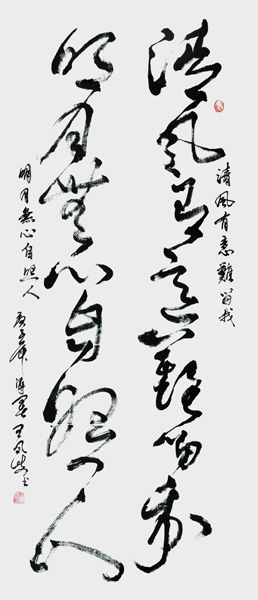 清風有意難留我
清風有意難留我
明月無心自照人
明月無心自照人
庚子年 王